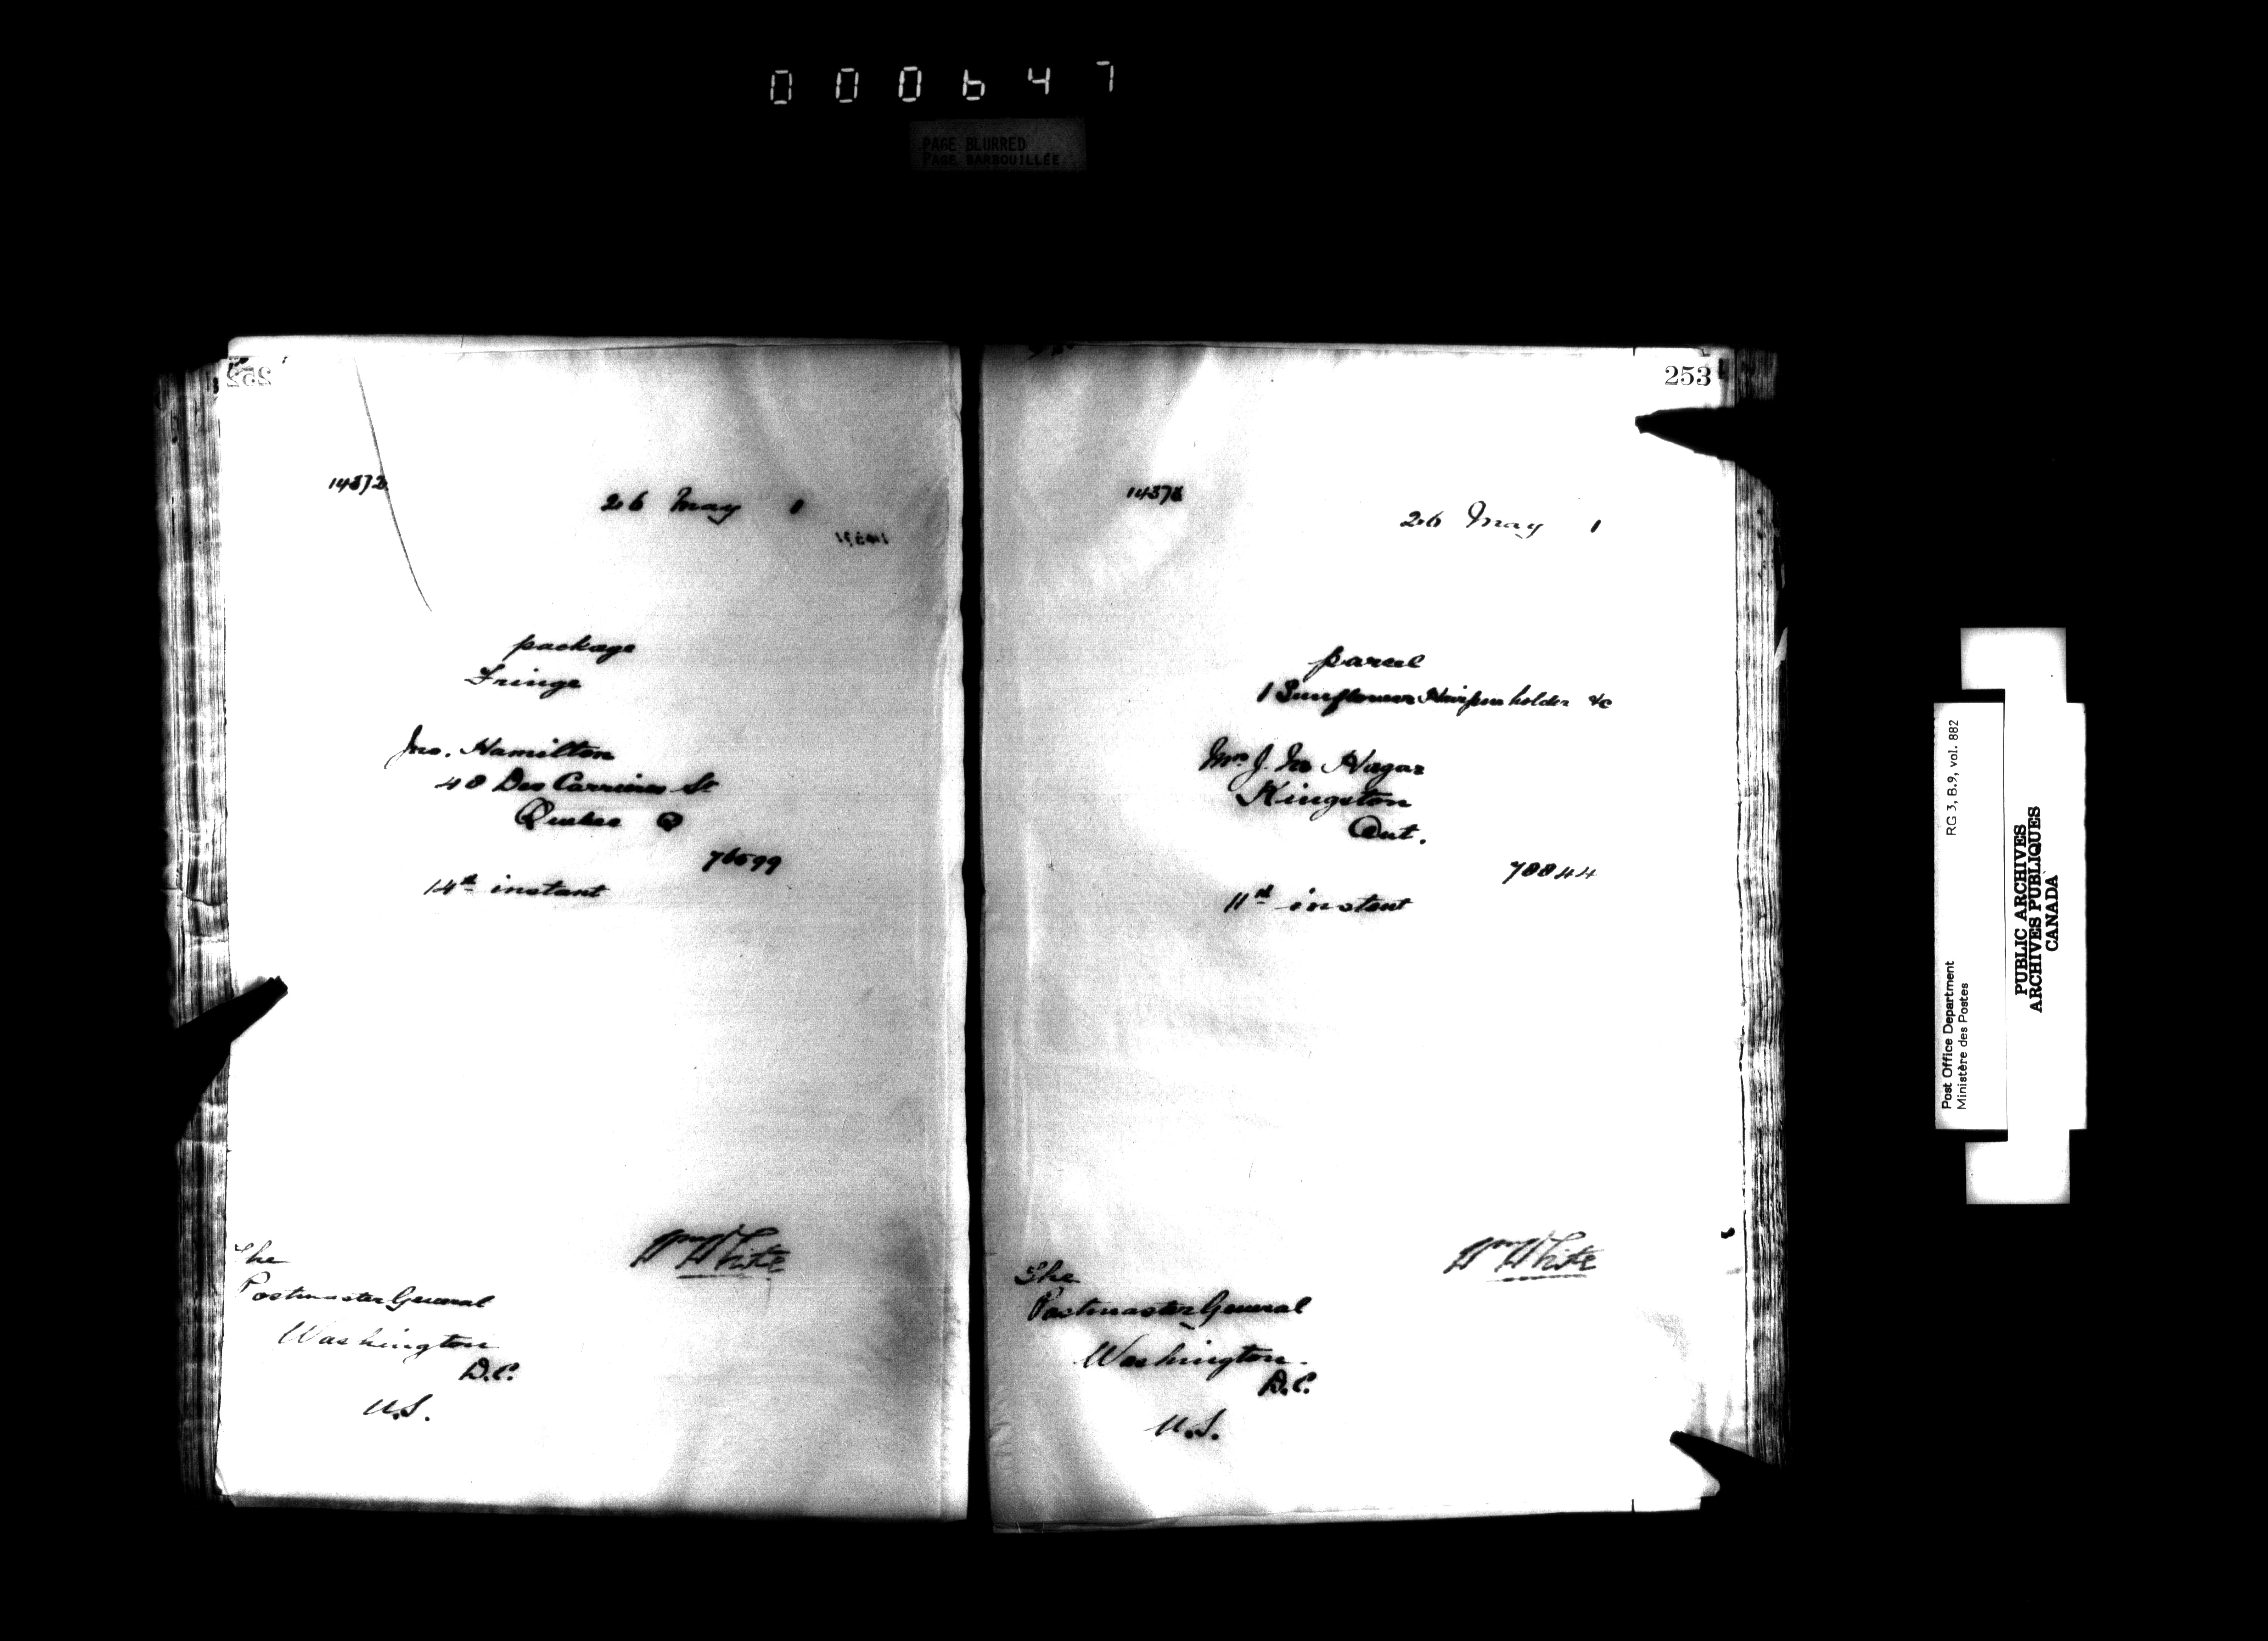 000647
PAGE BLURRED
PAGE BARBOUILLÉE
252
14372
26 May 1
14371
package
Fringe
Jno. Hamilton
48 Des Carrieres St
Quebec Q
76599
14th instant
Wm White
The
Postmaster General
Washington
D.C.
U.S.
253
14373
26 May 1
parcel
1 Sunflower Hairpin holder &c
Mrs J. Hagar
Kingston
Ont.
78844
11th instant
Wm White
The
Postmaster General
Washington.
D.C.
U.S.
Post Office Department
Ministère des Postes
RG 3, B.9, vol. 882
PUBLIC ARCHIVES
ARCHIVES PUBLIQUES
CANADA